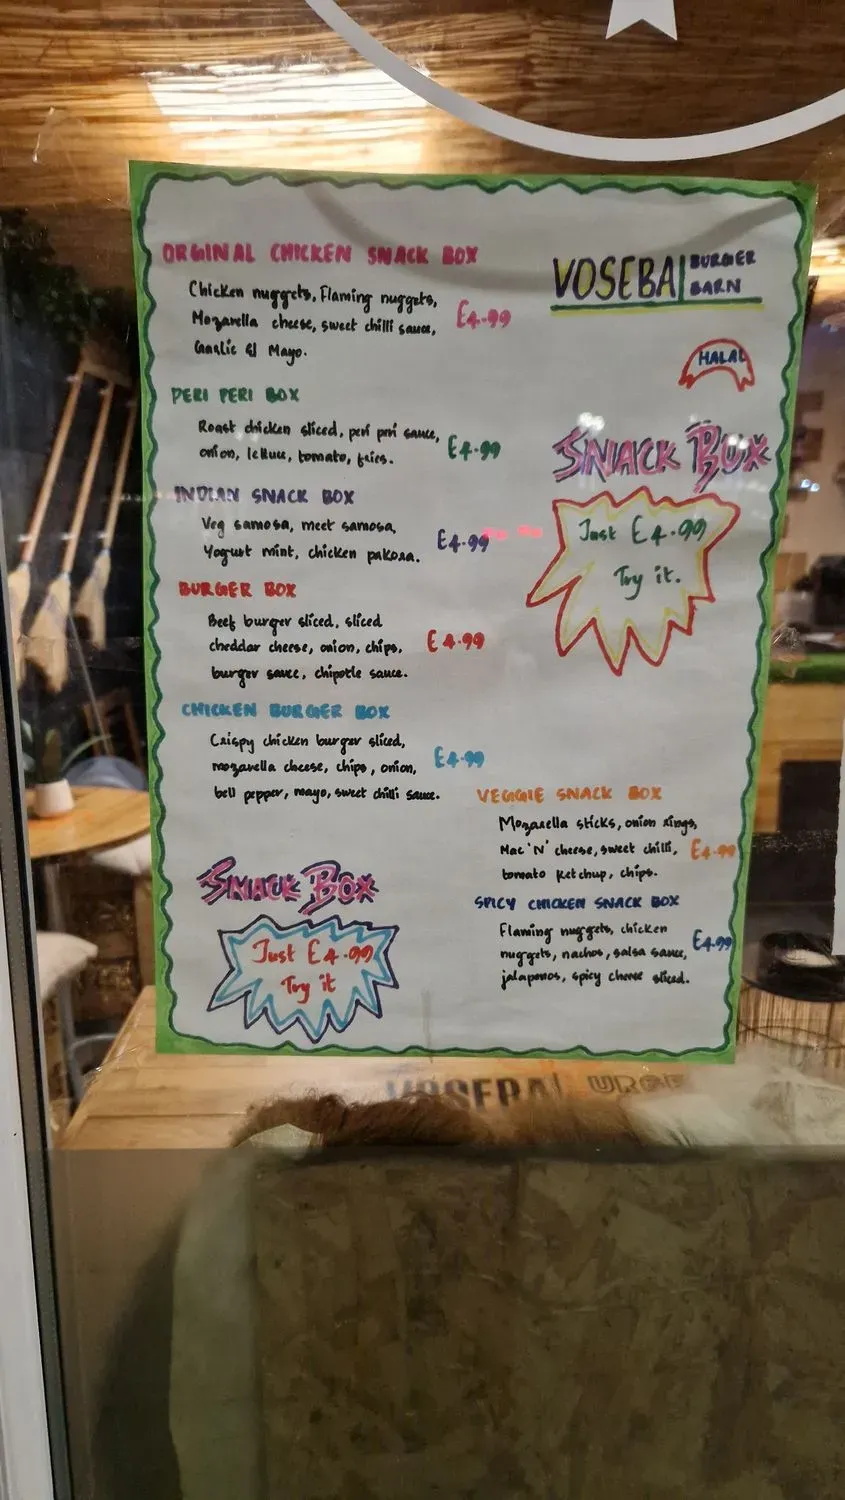 ORGINAL CHICKEN SNACK BOX
Chicken nuggets, Flaming nuggets,
Mozarella cheese, sweet chilli sauce,
Garlic & Mayo.
£4.99
PERI PERI BOX
Roast chicken sliced, peri peri sauce,
onion, lettuce, tomato, fries.
£4.99
INDIAN SNACK BOX
Veg samosa, meet samosa,
Yogurt mint, chicken pakora.
£4.99
BURGER BOX
Beef burger sliced, sliced
cheddar cheese, onion, chips,
burger sauce, chipotle sauce.
£4.99
CHICKEN BURGER BOX
Crispy chicken burger sliced,
mozarella cheese, chips, onion,
bell pepper, mayo, sweet chilli sauce.
£4.99
SNACK BOX
Just £4.99
Try it
VOSEBA BURGER
BARN
HALAL
SNACK BOX
Just £4.99
Try it.
VEGGIE SNACK BOX
Mozarella sticks, onion rings,
Mac 'N' cheese, sweet chilli,
tomato ketchup, chips.
£4.99
SPICY CHICKEN SNACK BOX
Flaming nuggets, chicken
nuggets, nachos, salsa sauce,
jalapenos, spicy cheese sliced.
£4.99
VOSEBA URGE